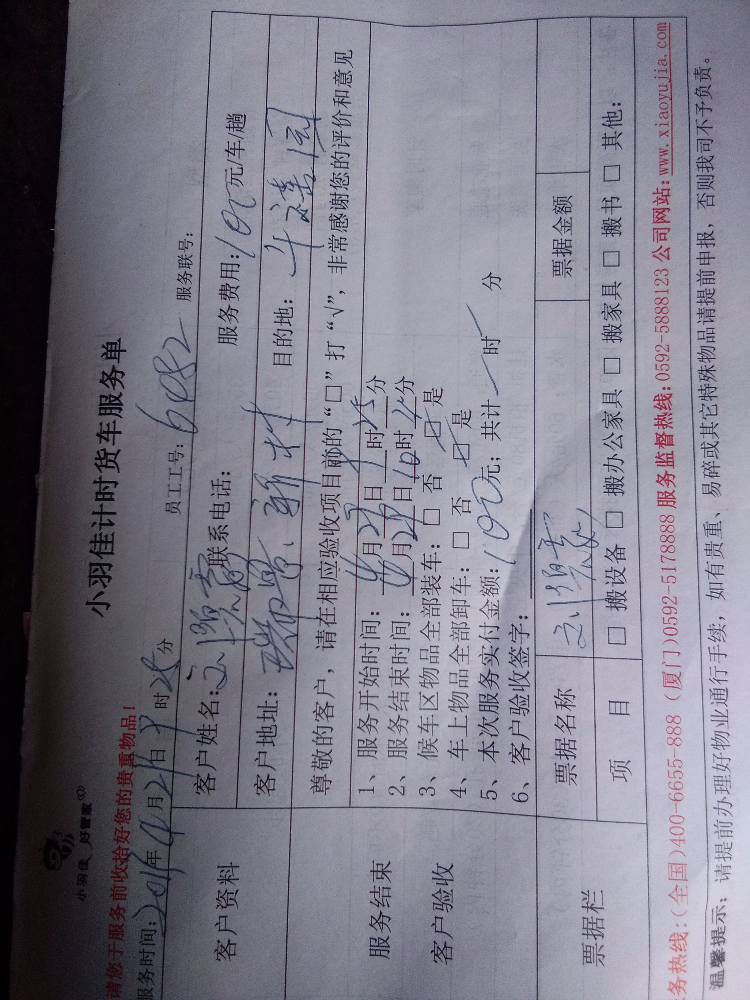 小羽佳 好管家
小羽佳计时货车服务单
请您于服务前收拾好您的贵重物品!
服务时间: 年 月 日 时 25 分 员工工号: 6082 服务联号:
客户资料
客户姓名: 联系电话: 服务费用: 100 元/车/趟
客户地址: 瑞景新村 目的地:
尊敬的客户,请在相应验收项目前的“□”打“√”,非常感谢您的评价和意见
服务结束
客户验收
1、服务开始时间: 月 日 时 分
2、服务结束时间: 月 日 10 时 分
3、候车区物品全部装车: □ 否 ☑ 是
4、车上物品全部卸车: □ 否 ☑ 是
5、本次服务实付金额: 100 元; 共计 时 分
6、客户验收签字:
票据栏
票据名称 票据金额
项 目 □ 搬设备 □ 搬办公家具 □ 搬家具 □ 搬书 □ 其他:
务热线:(全国)400-6655-888 (厦门)0592-5178888 服务监督热线:0592-5888123 公司网站:www.xiaoyujia.com
温馨提示: 请提前办理好物业通行手续, 如有贵重、易碎或其它特殊物品请提前申报, 否则我司不予负责。